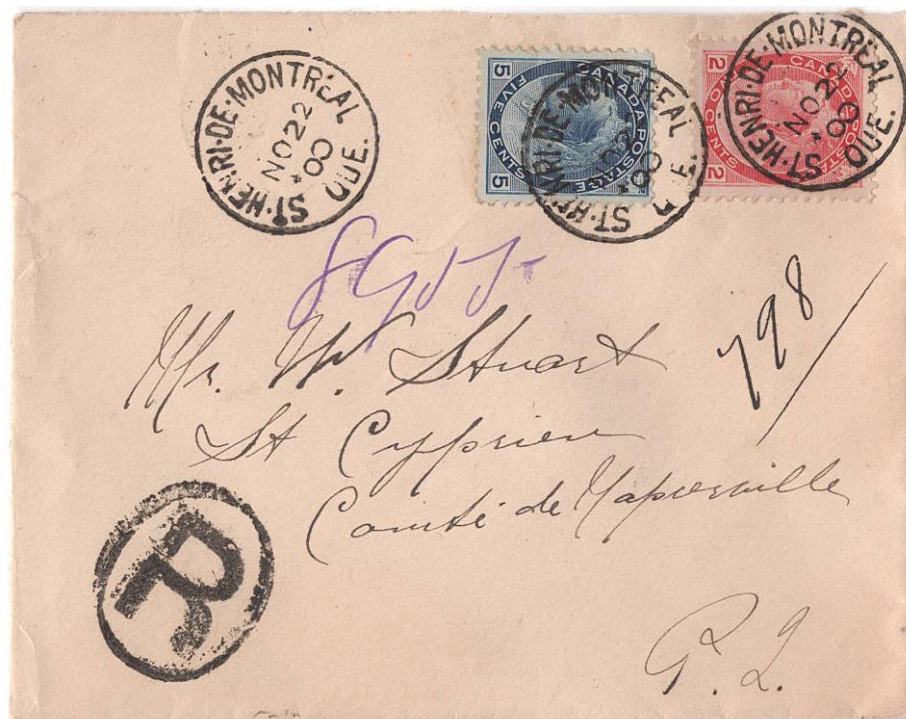 ST·HENRI·DE·MONTREAL QUE.
NO 22
00
CANADA POSTAGE
FIVE CENTS
5 5
ST·HENRI·DE·MONTREAL
00
CANADA POSTAGE
TWO CENTS
2 2
ST·HENRI·DE·MONTREAL QUE.
NO 22
00
798
Mr. W. Stuart
St Cyprien
Comté de Napierville
P. Q.
R